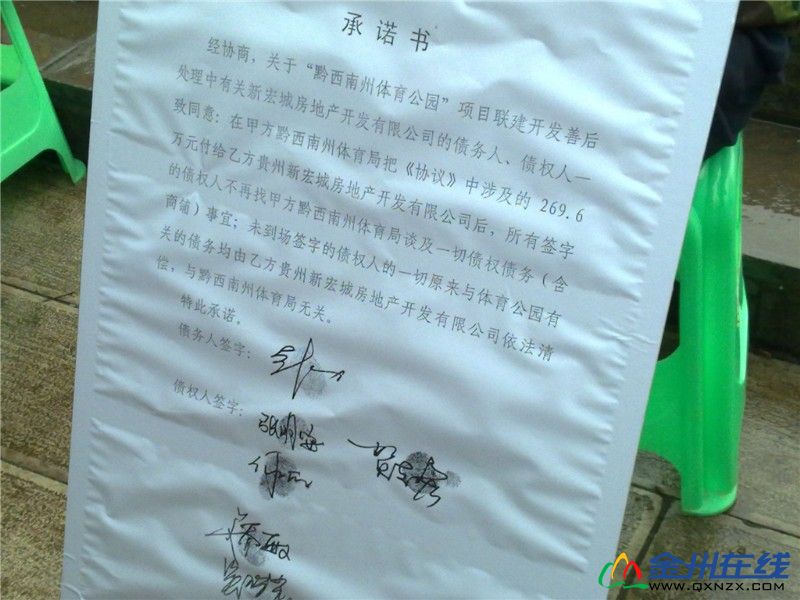 承诺书
经协商，关于“黔西南州体育公园”项目联建开发善后
处理中有关新宏城房地产开发有限公司的债务人、债权人一
致同意：在甲方黔西南州体育局把《协议》中涉及的 269.6
万元付给乙方贵州新宏城房地产开发有限公司后，所有签字
的债权人不再找甲方黔西南州体育局谈及一切债权债务（含
商铺）事宜；未到场签字的债权人的一切原来与体育公园有
关的债务均由乙方贵州新宏城房地产开发有限公司依法清
偿，与黔西南州体育局无关。
特此承诺。
债务人签字：
债权人签字：
张明安
金州在线
WWW.QXNZX.COM